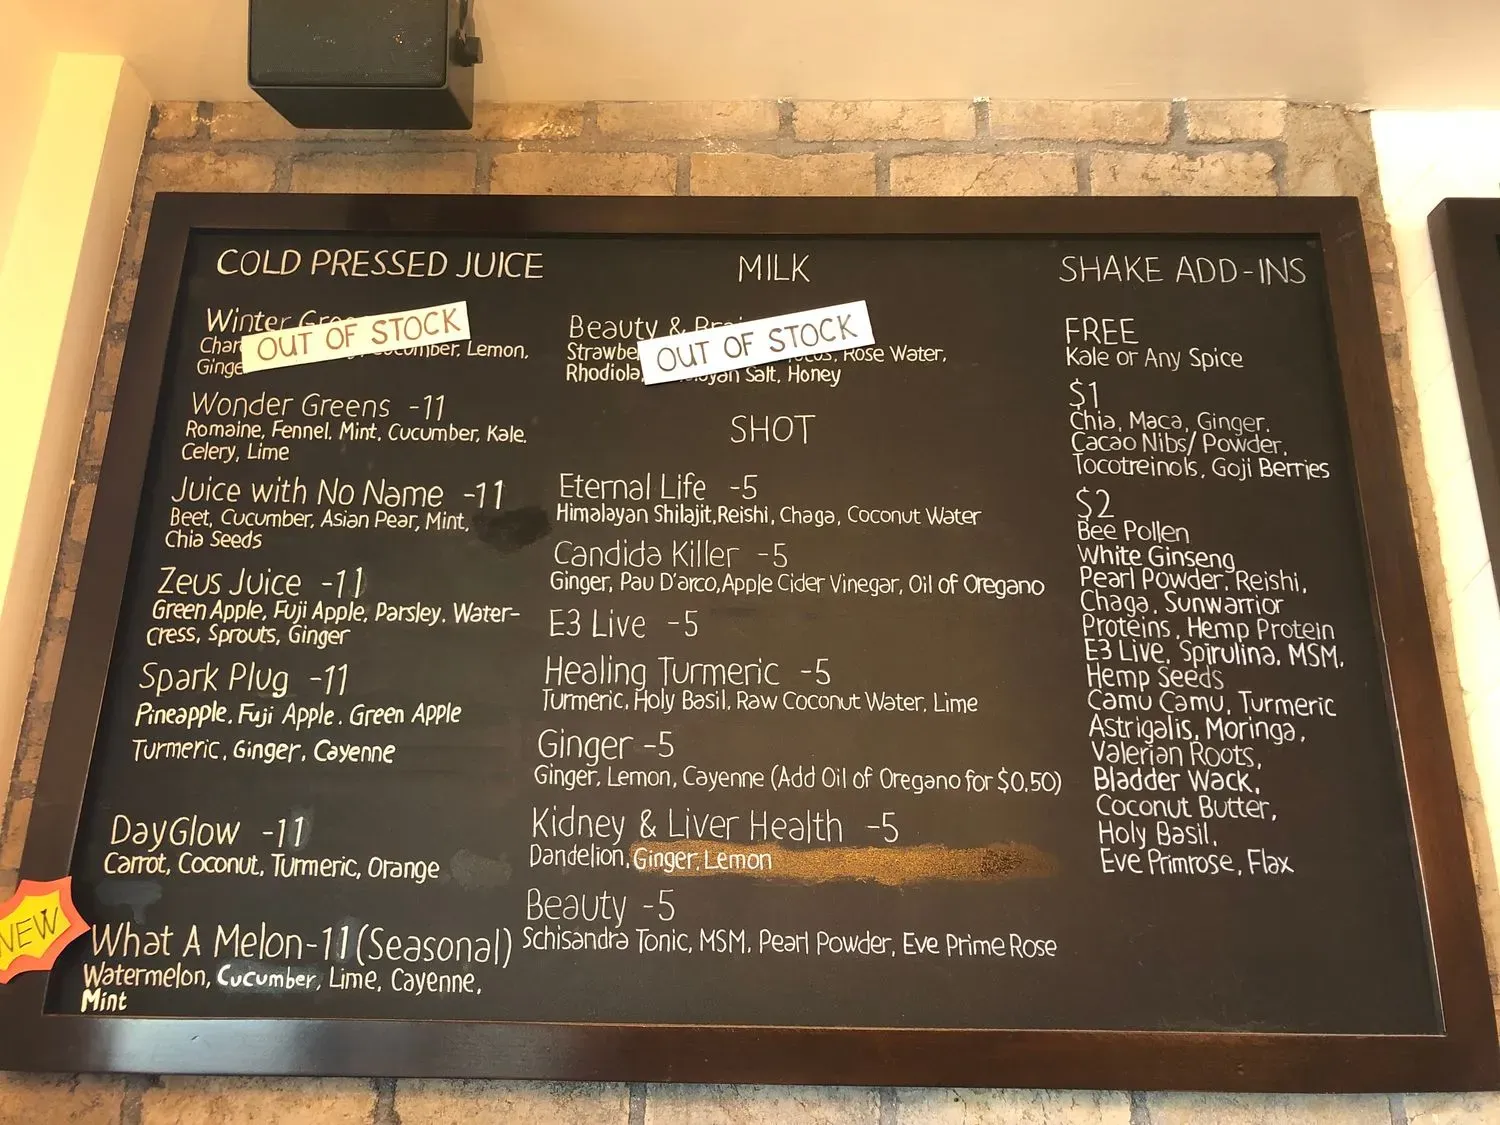 COLD PRESSED JUICE
Winter
OUT OF STOCK
Lemon,
Wonder Greens -11
Romaine, Fennel, Mint, Cucumber, Kale,
Celery, Lime
Juice with No Name -11
Beet, Cucumber, Asian Pear, Mint,
Chia Seeds
Zeus Juice -11
Green Apple, Fuji Apple, Parsley, Water-
cress, Sprouts, Ginger
Spark Plug -11
Pineapple, Fuji Apple, Green Apple
Turmeric, Ginger, Cayenne
DayGlow -11
Carrot, Coconut, Turmeric, Orange
NEW
What A Melon-11 (Seasonal)
Watermelon, Cucumber, Lime, Cayenne,
Mint
MILK
Beauty &
OUT OF STOCK
Rose Water,
Rhodiola, Salt, Honey
SHOT
Eternal Life -5
Himalayan Shilajit, Reishi, Chaga, Coconut Water
Candida Killer -5
Ginger, Pau D'arco, Apple Cider Vinegar, Oil of Oregano
E3 Live -5
Healing Turmeric -5
Turmeric, Holy Basil, Raw Coconut Water, Lime
Ginger -5
Ginger, Lemon, Cayenne (Add Oil of Oregano for $0.50)
Kidney & Liver Health -5
Dandelion, Ginger, Lemon
Beauty -5
Schisandra Tonic, MSM, Pearl Powder, Eve Prime Rose
SHAKE ADD-INS
FREE
Kale or Any Spice
$1
Chia, Maca, Ginger,
Cacao Nibs/ Powder,
Tocotreinols, Goji Berries
$2
Bee Pollen
White Ginseng
Pearl Powder, Reishi,
Chaga, Sunwarrior
Proteins, Hemp Protein
E3 Live, Spirulina, MSM,
Hemp Seeds
Camu Camu, Turmeric
Astrigalis, Moringa,
Valerian Roots,
Bladder Wack,
Coconut Butter,
Holy Basil,
Eve Primrose, Flax